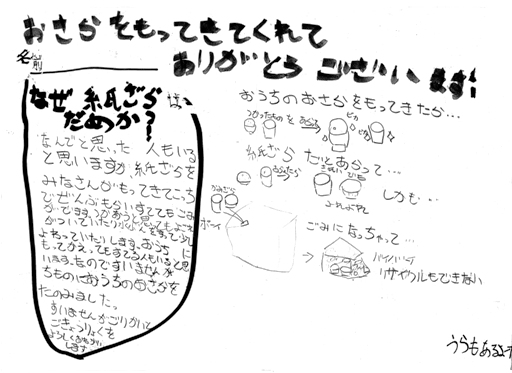 おさらをもってきてくれて
ありがとうございます!
名前
なぜ紙ざらは
だめか?
なんでと思った人もいる
と思いますが紙ざらを
みなさんがもってきてこっち
でぜんぶもらいすててもごみ
がでます。
よわっていたりします。おうちに
もってかえってもすてる人もいると思
います。なのですいませんが
ちものにおうちのおさらを
たのみましたっ
すいませんがごりかいと
ごきょうりょくを
よろしくおねがい
します
おうちのおさらをもってきたら…
つかったものをあらう
ピカ
紙ざらだとあらって…
しかも…
かみざら
ポーイ
ごみになっちゃって…
リサイクルもできない
うらもあるよ